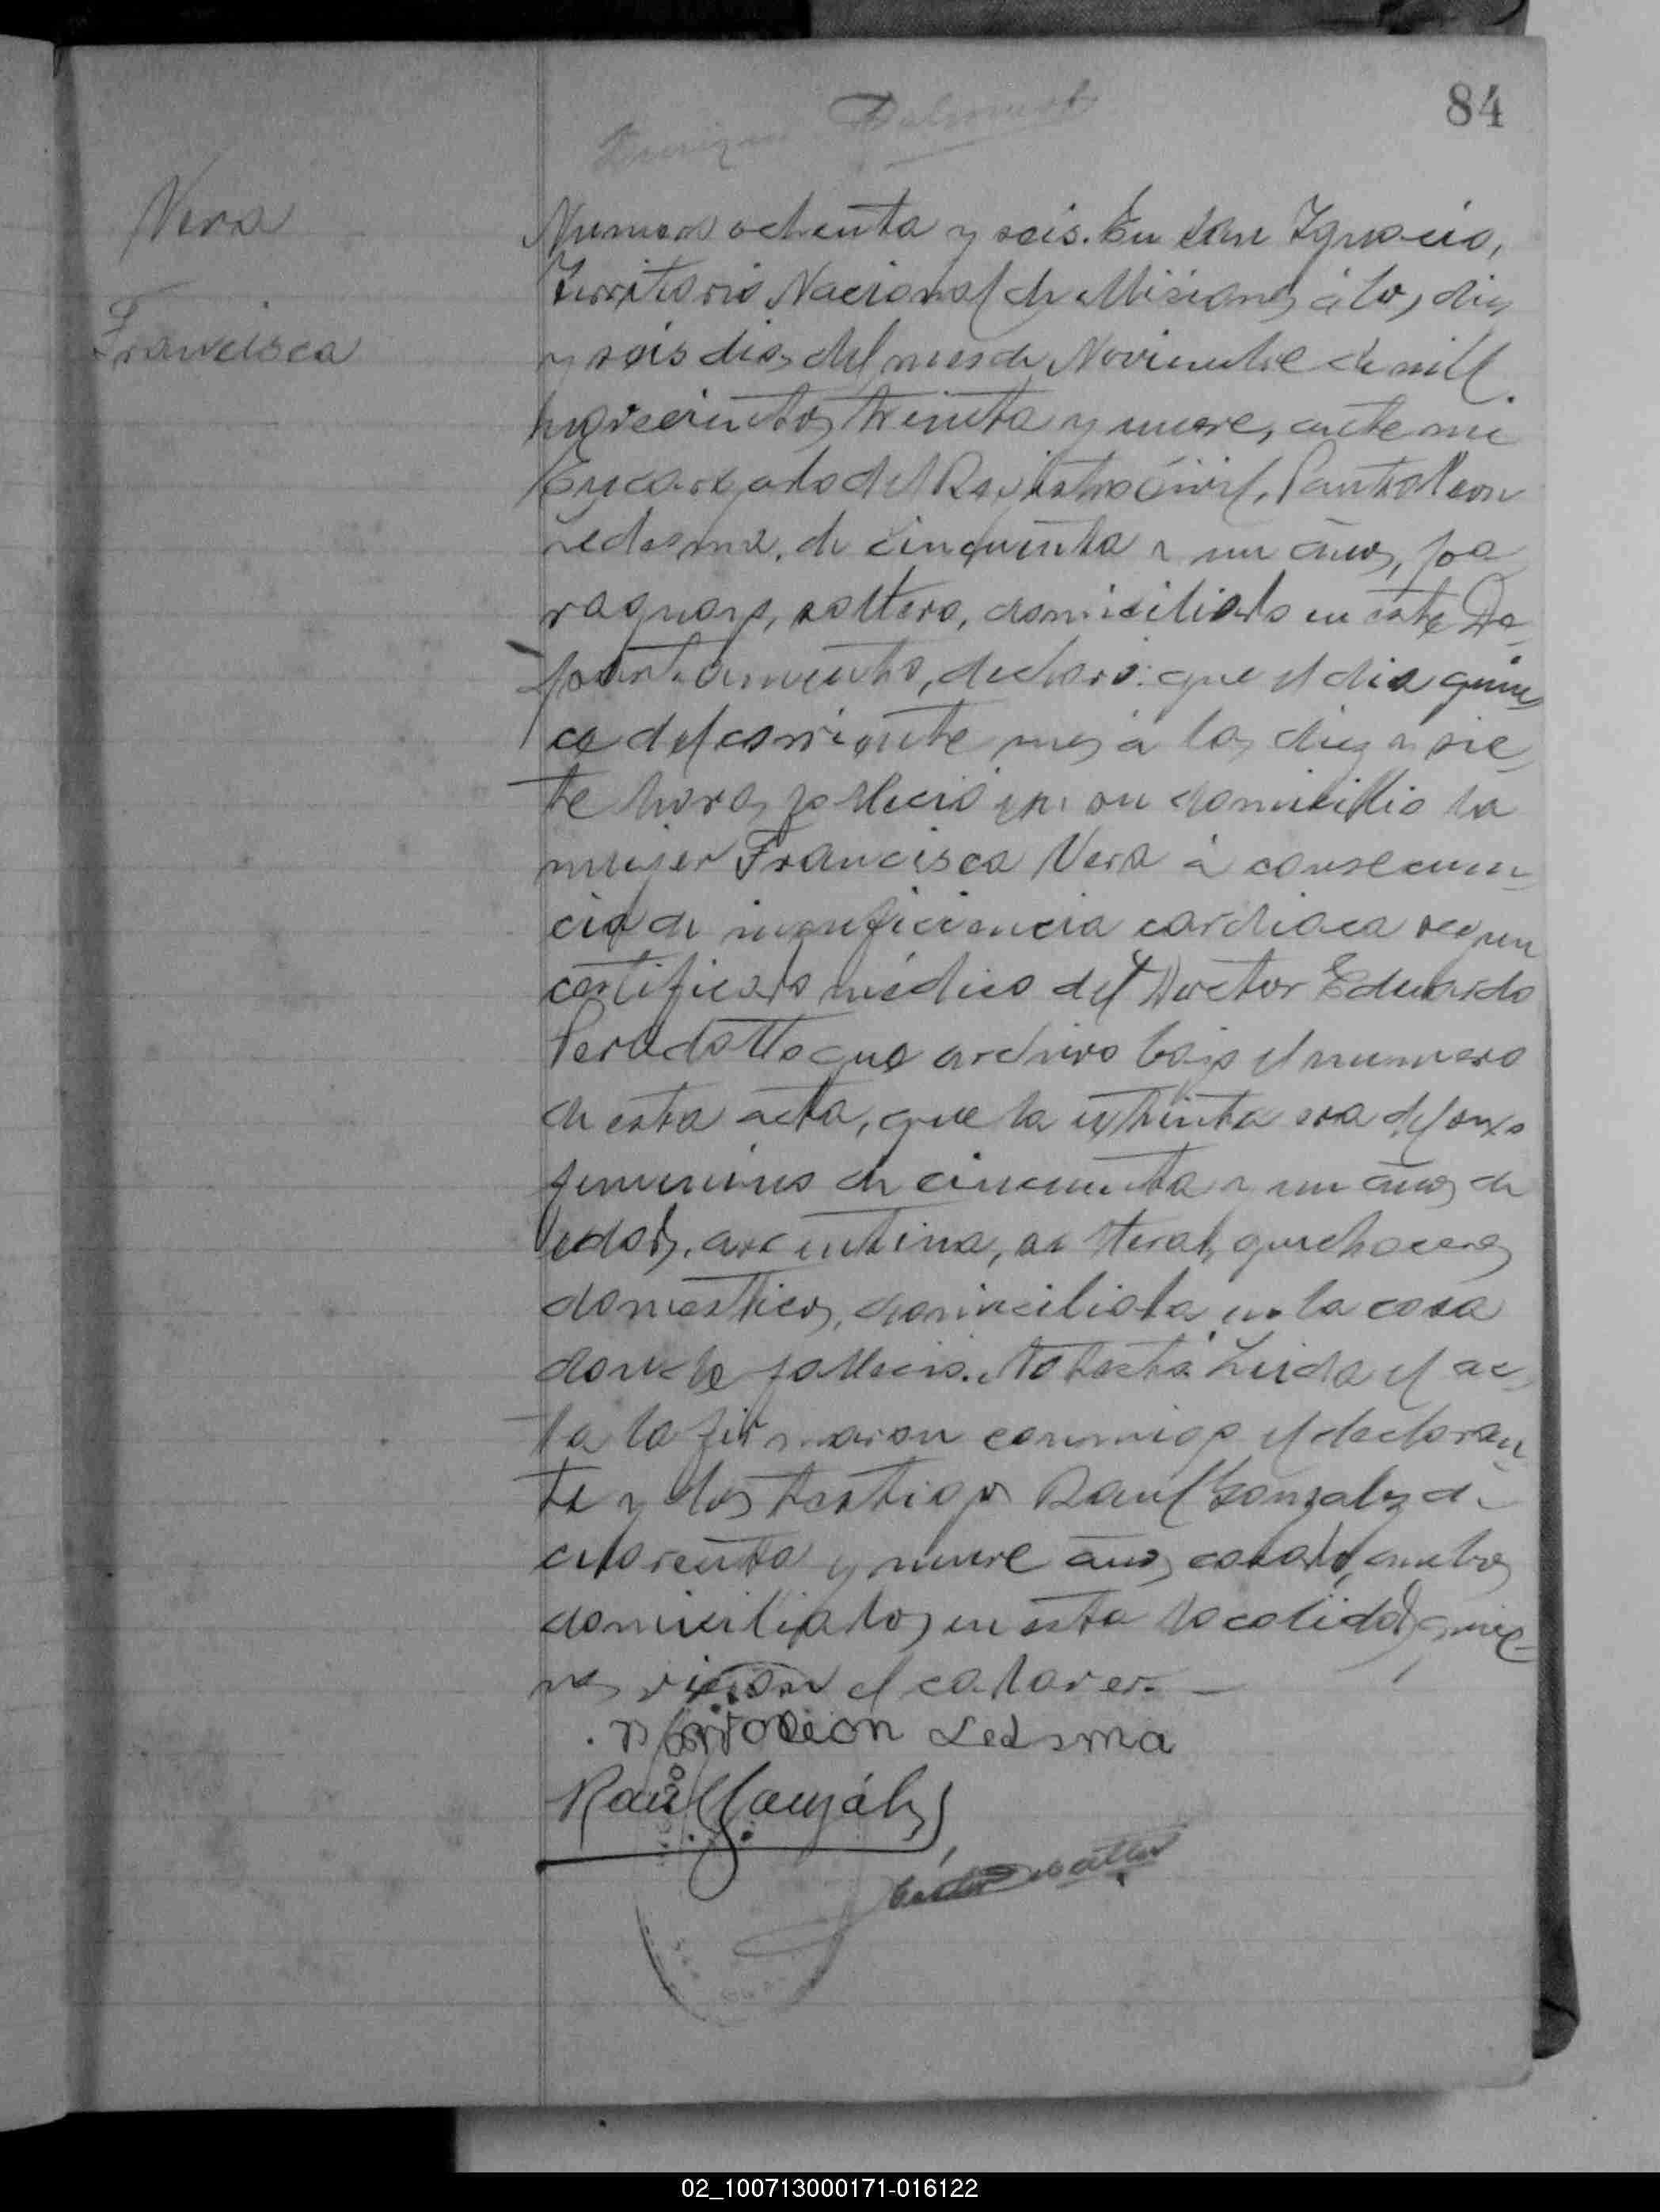 84
Vera
Francisca
Numero ochenta y seis. En San Ignacio,
Territorio Nacional de Misiones, á los diez
y seis dias del mes de Noviembre de mil
novecientos treinta y nueve, ante mi
Encargado del Registro Civil, Pantaleon
Ledesma, de cincuenta y un años, pa
raguayo, soltero, domiciliado en este De
partamento, declaró: que el dia quin
ce del corriente mes á las diez y sie
te horas falleció en su domicilio la
mujer Francisca Vera á consecuen
cia de insuficiencia cardiaca segun
certificado médico del Doctor Eduardo
que archivo bajo el numero
de esta acta, que la extinta era del sexo
femenino de cincuenta y un años de
edad, argentina, soltera, quehaceres
domesticos, domiciliada en la casa
donde falleció. No testó. Leida el ac
ta la firmaron conmigo el declaran
te y los testigos Raul Gonzalez de
cuarenta y nueve años, casado, ambos
domiciliados en esta localidad, quie
nes vieron el cadaver.
Pantaleon Ledsma
Raúl Gonzáles
02_100713000171-016122